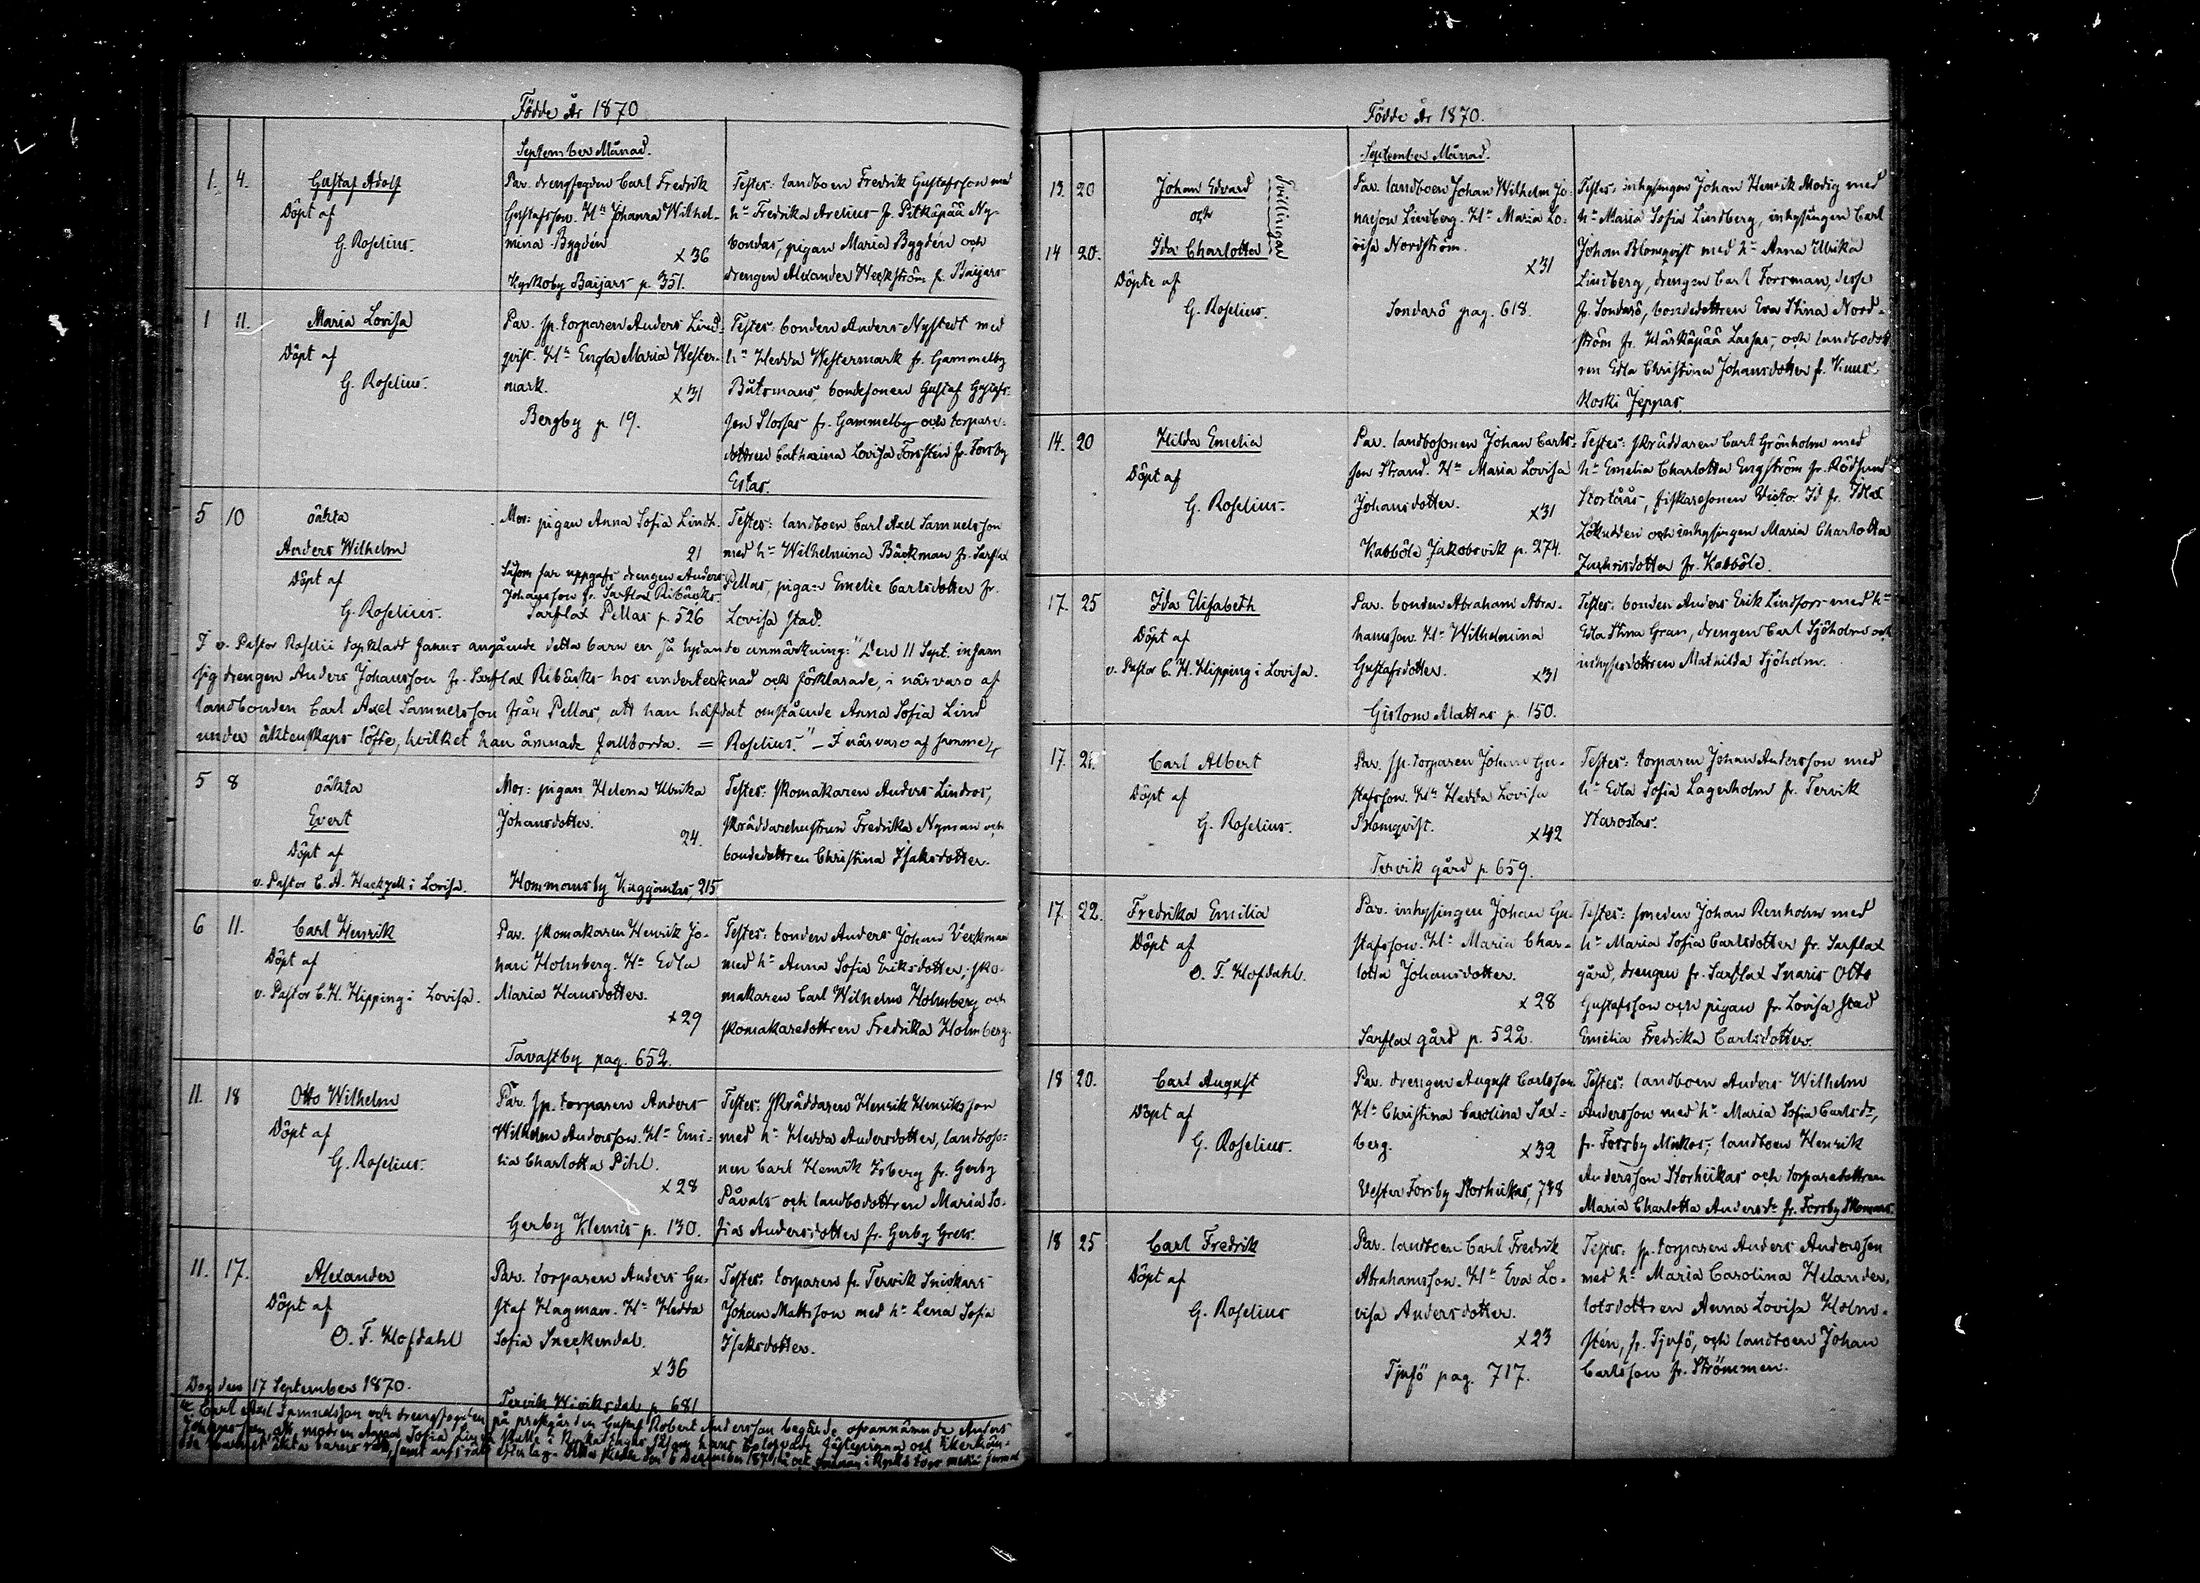 Födde År 1870
September Månad.
1. 4. Gustaf Adolf
Döpt af
G. Roselius.
Par. drengfogden Carl Fredrik
Gustafsson. Hn Johanna Wilhel-
mina Bygdén
x 36
Kyrkoby Baijars p. 351.
Testes: landboen Fredrik Gustafsson med
hn Fredrika Arelius fr. Pitkäpää Ny-
bondas, pigan Maria Bygdén och
drengen Alexander Weckström fr. Baijars
1 11. Maria Lovisa
Döpt af
G. Roselius.
Par. sp. torparen Anders Lind-
qvist. Hn Engla Maria Wester-
mark.
x 31
Bergby p. 19.
Testes: bonden Anders Nystedt med
hn Hedda Westermark fr. Gammelby
Båtsmans, bondesonen Gustaf Gustafs-
son Storsas fr. Gammelby och torpare-
dottren Catharina Lovisa Forstén fr. Forsby
Estas.
5 10 oäkta
Anders Wilhelm
Döpt af
G. Roselius.
Mor: pigan Anna Sofia Lindh.
21
Såsom far uppgafs drengen Anders
Johansson fr. Sarflax Ribäcks.
Sarflax Pellas p. 526
Testes: landboen Carl Axel Samuelsson
med hn Wilhelmina Bäckman fr. Sarflax
Pellas, pigan Emelie Carlsdotter fr.
Lovisa stad.
I v. Pastor Roselii dopkladd fanns angående detta barn en så lydande anmärkning: "Den 11 Sept. infann
sig drengen Anders Johansson fr. Sarflax Ribäcks hos undertecknad och förklarade, i närvaro af
landbonden Carl Axel Samuelsson från Pellas, att han häfdat omstående Anna Sofia Lind
under äktenskaps löfte, hvilket han ämnade fullborda. = Roselius." – I närvaro af samme
5 8 oäkta
Evert
Döpt af
v. Pastor C. A. Hackzell i Lovisa.
Mor: pigan Helena Ulrika
Johansdotter.
24.
Hommansby Kuggjontas, 215
Testes: skomakaren Anders Lindros,
skräddarehustrun Fredrika Nyman och
bondedottren Christina Isaksdotter.
6 11. Carl Henrik
Döpt af
v. Pastor C. H. Hipping i Lovisa.
Par. skomakaren Henrik Jo-
han Holmberg. Hn Edla
Maria Hansdotter.
x 29
Tavastby pag. 652.
Testes: bonden Anders Johan Veckman
med hn Anna Sofia Eriksdotter, sko-
makaren Carl Wilhelm Holmberg och
skomakaredottren Fredrika Holmberg.
11. 18 Otto Wilhelm
Döpt af
G. Roselius.
Par. sp. torparen Anders
Wilhelm Andersson. Hn Emi-
lia Charlotta Pihl.
x 28
Gerby Klemis p. 130.
Testes: skräddaren Henrik Henriksson
med hn Hedda Andersdotter, landboso-
nen Carl Henrik Isberg fr. Gerby
Påvals och landbodottren Maria So-
fia Andersdotter fr. Gerby Grels.
11. 17. Alexander
Döpt af
O. F. Hofdahl
Par. torparen Anders Gu-
staf Hagman. Hn Hedda
Sofia Sneckendal.
x 36
Tervik Wiriksdal p. 681
Testes: torparen fr. Tervik Snickars
Johan Mattsson med hn Lena Sofia
Isaksdotter.
Dog den 17 September 1870.
Carl Axel Samuelsson och drengfogden på prestgården Gustaf Robert Andersson begärde ofvannämnde Anders
Johansson, att modren Anna Sofia Lindh skulle i kyrkobogen såsom hans
Födde År 1870.
September Månad.
13. 20 Johan Edvard
och
14 20. Ida Charlotta
Tvillingar
Döpte af
G. Roselius.
Par. landboen Johan Wilhelm Jo-
nasson Lindberg. Hn Maria Lo-
visa Nordström.
x 31
Sondarö pag. 618.
Testes: inhysingen Johan Henrik Modig med
hn Maria Sofia Lindberg, inhysingen Carl
Johan Blomqvist med hn Anna Ulrika
Lindberg, drengen Carl Forsman, desse
fr. Sondarö, bondedottren Eva Stina Nord-
ström fr. Härkäpää Lassas, och landbodott-
ren Edla Christina Johansdotter fr.
Koski Jeppas.
14. 20 Hilda Emelia
Döpt af
G. Roselius.
Par. landbosonen Johan Carls-
son Strand. Hn Maria Lovisa
Johansdotter.
x 31
Kabböle Jakobsvik p. 274.
Testes: skräddaren Carl Grönholm med
hn Emelia Charlotta Engström fr. Rödsund
Stortåås, fiskaresonen Victor Id fr.
Lökudden och inhysingen Maria Charlotta
Zachrisdotter fr. Kabböle.
17. 25 Ida Elisabeth
Döpt af
v. Pastor C. H. Hipping i Lovisa.
Par. bonden Abraham Abra-
hamsson. Hn Wilhelmina
Gustafsdotter.
x 31
Gislom Mattas p. 150.
Testes: bonden Anders Erik Lindfors med hn
Edla Stina Gran, drengen Carl Sjöholm och
inhysesdottren Mathilda Sjöholm.
17. 21. Carl Albert
Döpt af
G. Roselius.
Par. sp. torparen Johan Gu-
stafsson. Hn Hedda Lovisa
Blomqvist.
x 42
Tervik gård p. 659.
Testes: torparen Johan Andersson med
hn Edla Sofia Lagerholm fr. Tervik
Starostas.
17. 22. Fredrika Emilia
Döpt af
O. F. Hofdahl.
Par. inhysingen Johan Gu-
stafsson. Hn Maria Char-
lotta Johansdotter.
x 28
Sarflax gård p. 522.
Testes: smeden Johan Renholm med
hn Maria Sofia Carlsdotter fr. Sarflax
gård, drengen fr. Sarflax Snaris Otto
Gustafsson och pigan fr. Lovisa stad
Emelia Fredrika Carlsdotter.
18 20. Carl August
Döpt af
G. Roselius.
Par. drengen August Carlsson.
Hn Christina Carolina Sax-
berg.
x 32
Vester Forsby Storhukas, 788
Testes: landboen Anders Wilhelm
Andersson med hn Maria Sofia Carlsdr,
fr. Forsby Mickos, landboen Henrik
Andersson Storhukas och torparedottren
Maria Charlotta Andersdr fr. Forsby Skomars.
18 25 Carl Fredrik
Döpt af
G. Roselius
Par. landboen Carl Fredrik
Abrahamsson. Hn Eva Lo-
visa Andersdotter.
x 23
Tjusö pag. 717.
Testes: sp. torparen Anders Andersson
med hn Maria Carolina Helander,
lotsdottren Anna Lovisa Holm-
stén, fr. Tjusö, och landboen Johan
Carlsson fr. Strömmen.